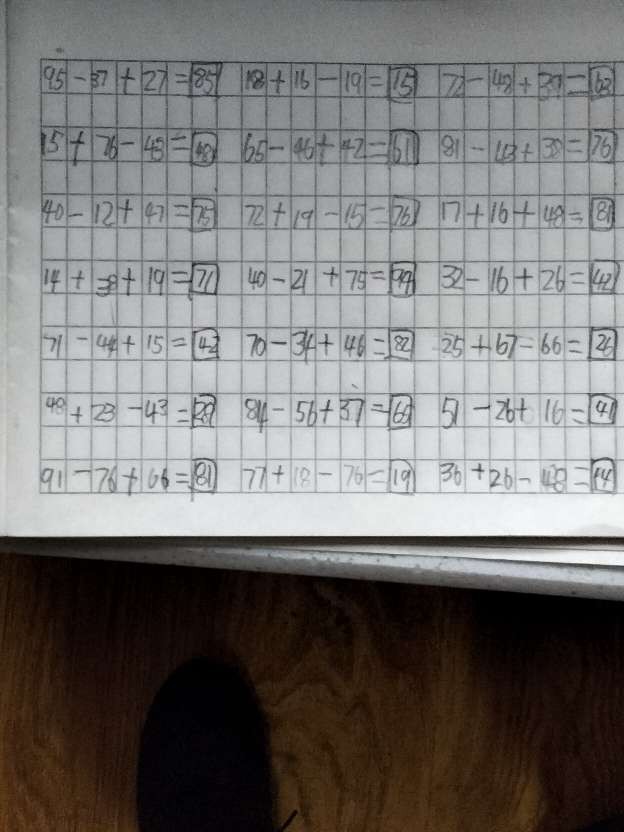 95-37+27=85 18+16-19=15 72-48+39=63
15+76-43=48 65-46+42=61 81-43+38=76
40-12+47=75 72+19-15=76 17+16+48=81
14+38+19=71 40-21+75=94 32-16+26=42
71-44+15=42 70-34+46=82 25+67-66=26
48+23-43=28 84-56+37=65 51-26+16=41
91-76+66=81 77+18-76=19 36+26-48=14